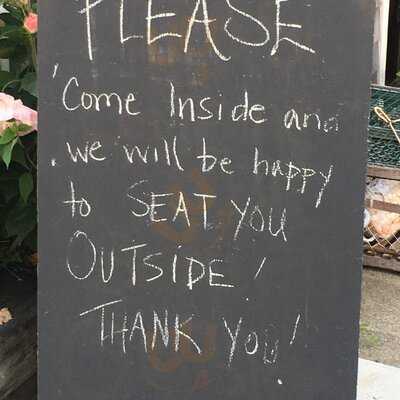 PLEASE
Come Inside and
we will be happy
to SEAT YOU
OUTSIDE!
THANK YOU!